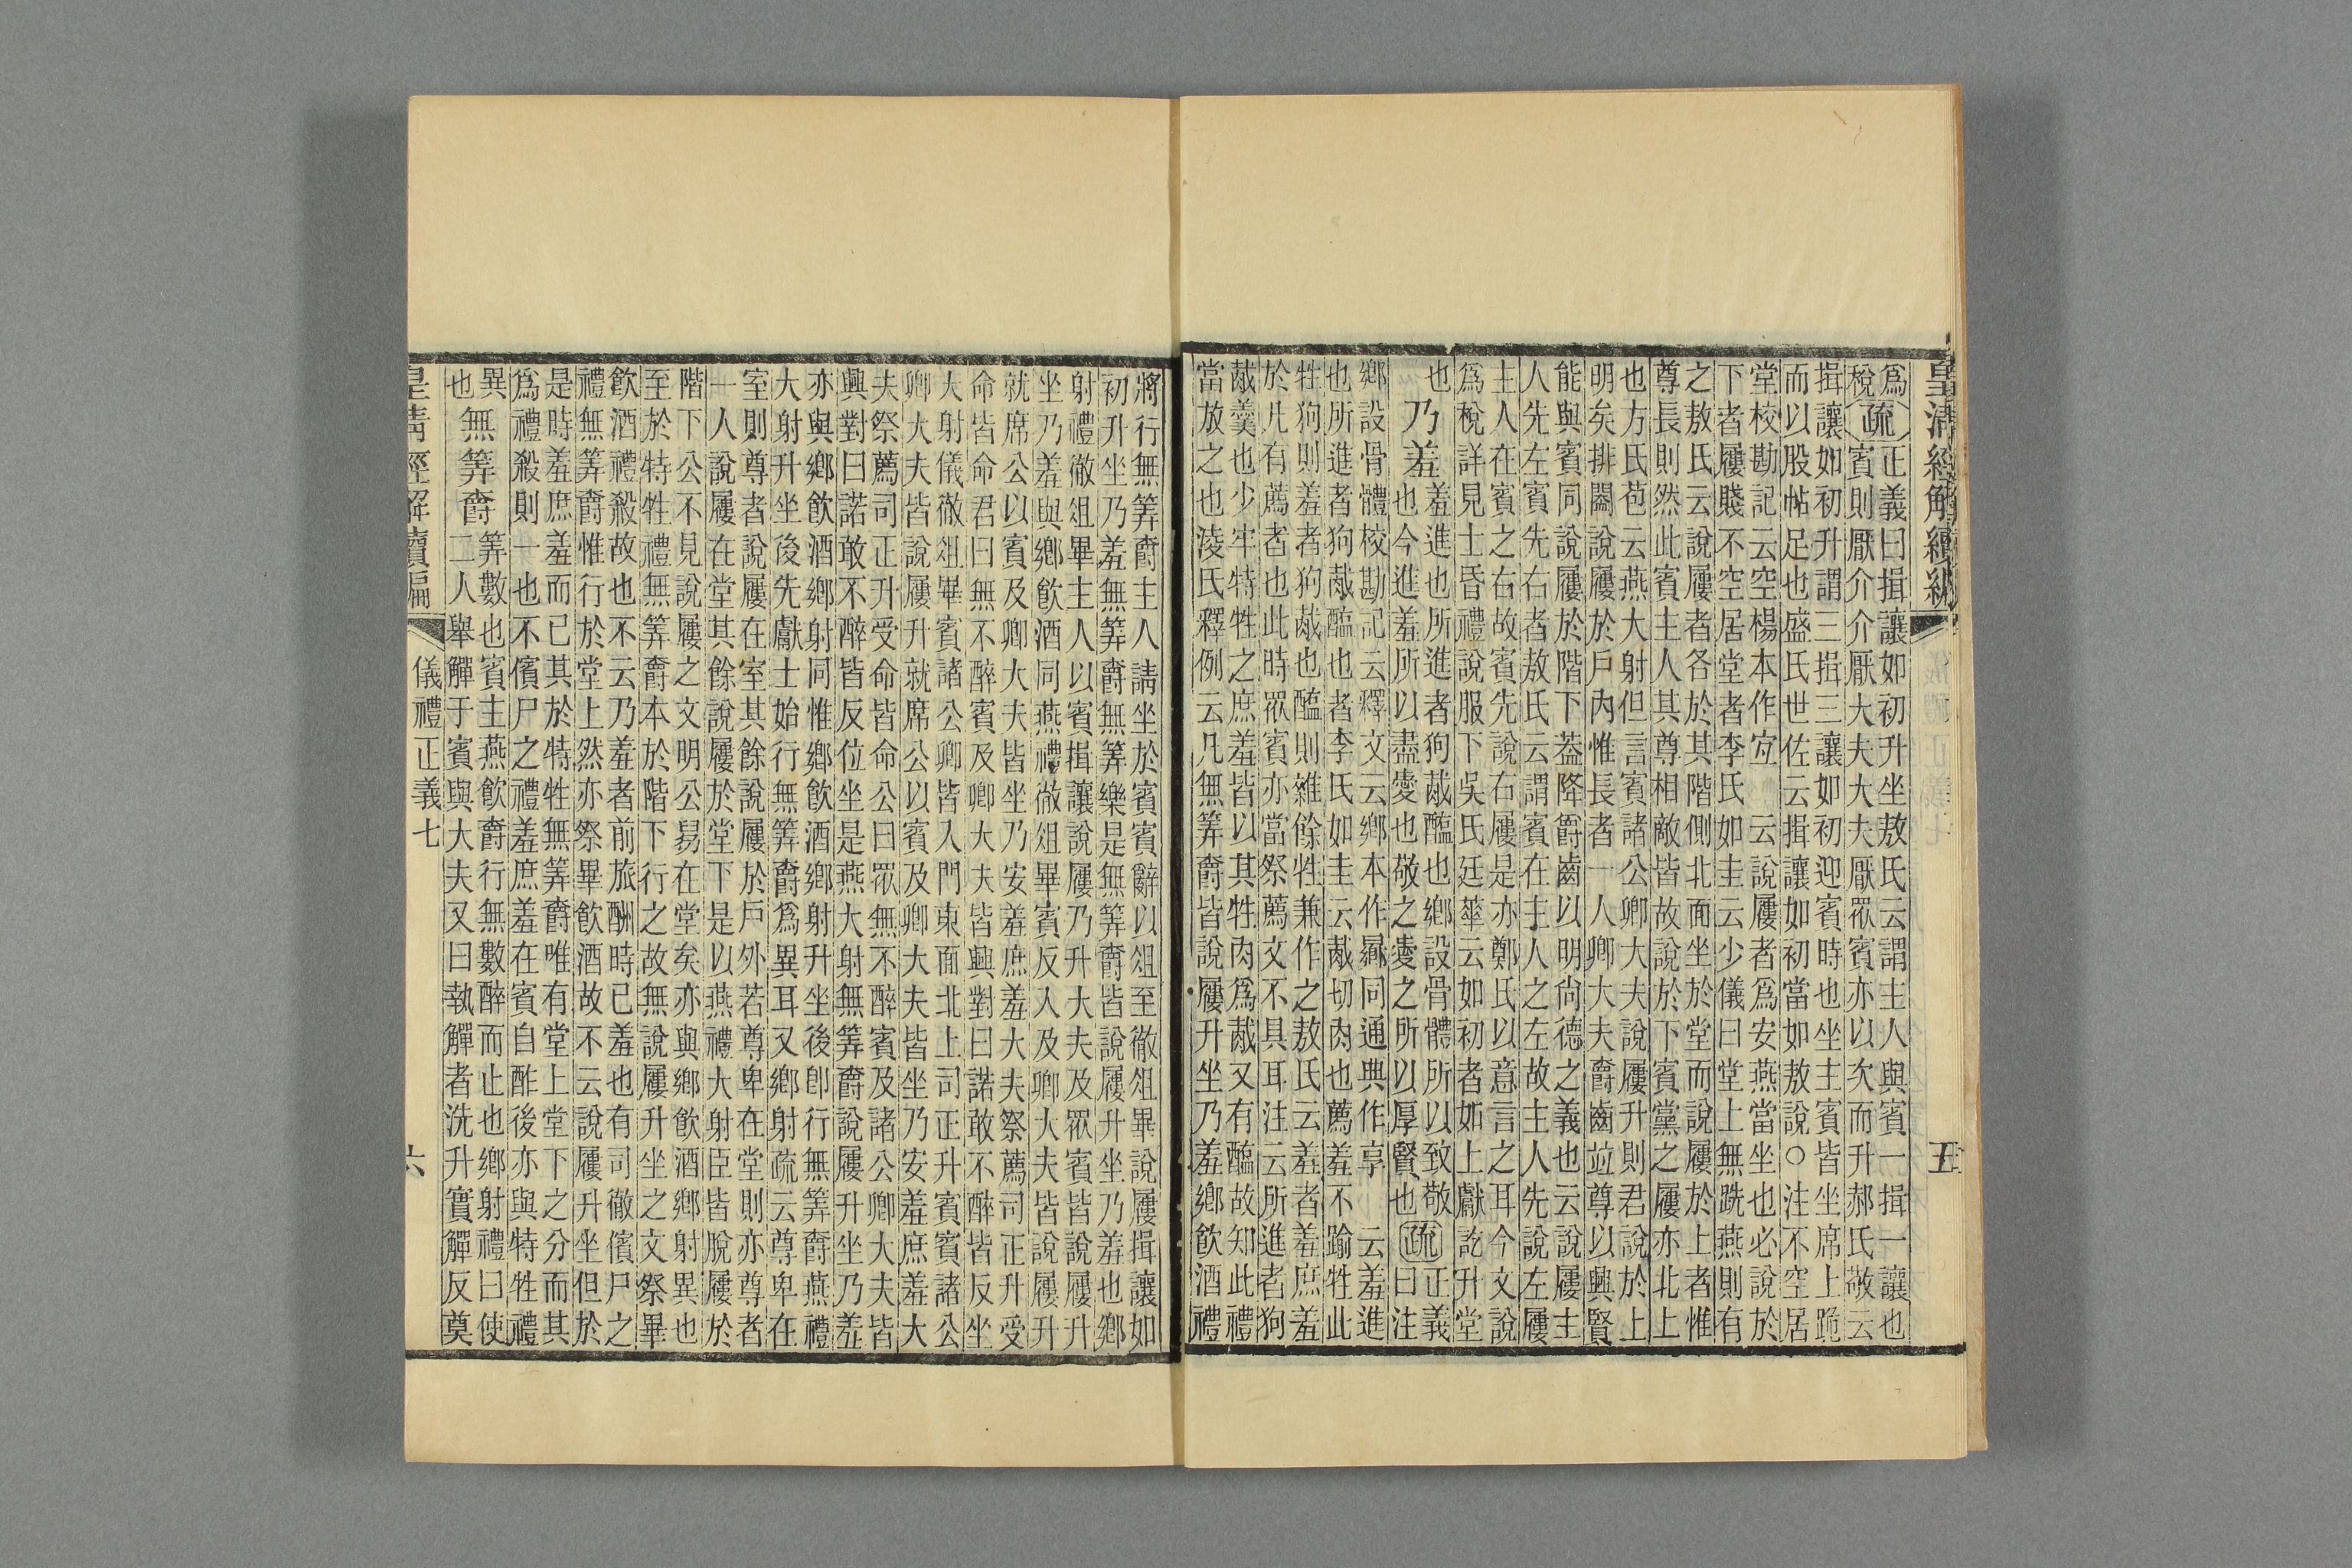 皇清經解續編　五
爲疏正義曰揖讓如初升坐敖氏云謂主人與賓一揖一讓也
梲賓則厭介介厭大夫大夫厭眾賓亦以次而升郝氏敬云
揖讓如初升謂三揖三讓如初迎賓時也坐主賓皆坐席上跪
而以股帖足也盛氏世佐云揖讓如初當如敖說○注不空居
堂校勘記云空楊本作宜　云說屨者爲安燕當坐也必說於
下者屨賤不空居堂者李氏如圭云少儀曰堂上無跣燕則有
之敖氏云說屨者各於其階側北面坐於堂而說屨於上者惟
尊長則然此賓主人其尊相敵皆故說於下賓黨之屨亦北上
也方氏苞云燕大射但言賓諸公卿大夫說屨升則君說於上
明矣排闔說屨於戶內惟長者一人卿大夫爵齒竝尊以興賢
能與賓同說屨於階下葢降爵齒以明尙德之義也云說屨主
人先左賓先右者敖氏云謂賓在主人之左故主人先說左屨
主人在賓之右故賓先說右屨是亦鄭氏以意言之耳今文說
爲梲詳見士昏禮說服下吳氏廷華云如初者如上獻訖升堂
也
乃羞羞進也所進者狗胾醢也鄉設骨體所以致敬
也今進羞所以盡愛也敬之愛之所以厚賢也疏正義
曰注
鄉設骨體校勘記云釋文云鄉本作曏同通典作享　云羞進
也所進者狗胾醢也者李氏如圭云胾切肉也薦羞不踰牲此
牲狗則羞者狗胾也醢則雜餘牲兼作之敖氏云羞者羞庶羞
於凡有薦者也此時眾賓亦當祭薦文不具耳注云所進者狗
胾羹也少牢特牲之庶羞皆以其牲肉爲胾又有醢故知此禮
當放之也淩氏釋例云凡無筭爵皆說屨升坐乃羞鄉飮酒禮
將行無筭爵主人請坐於賓賓辭以俎至徹俎畢說屨揖讓如
初升坐乃羞無筭爵無筭樂是無筭爵皆說屨升坐乃羞也鄉
射禮徹俎畢主人以賓揖讓說屨乃升大夫及眾賓皆說屨升
坐乃羞與鄉飮酒同燕禮徹俎畢賓反入及卿大夫皆說屨升
就席公以賓及卿大夫皆坐乃安羞庶羞大夫祭薦司正升受
命皆命君曰無不醉賓及卿大夫皆興對曰諾敢不醉皆反坐
大射儀徹俎畢賓諸公卿皆入門東面北上司正升賓賓諸公
卿大夫皆說屨升就席公以賓及卿大夫皆坐乃安羞庶羞大
夫祭薦司正升受命皆命公曰眾無不醉賓及諸公卿大夫皆
興對曰諾敢不醉皆反位坐是燕大射無筭爵說屨升坐乃羞
亦與鄉飮酒鄉射同惟鄉飮酒鄉射升坐後卽行無筭爵燕禮
大射升坐後先獻士始行無筭爵爲異耳又鄉射疏云尊卑在
室則尊者說屨在室其餘說屨於戶外若尊卑在堂則亦尊者
一人說屨在堂其餘說屨於堂下是以燕禮大射臣皆脫屨於
階下公不見說屨之文明公舄在堂矣亦與鄉飮酒鄉射異也
至於特牲禮無筭爵本於階下行之故無說屨升坐之文祭畢
飮酒禮殺故也不云乃羞者前旅酬時已羞也有司徹儐尸之
禮無筭爵惟行於堂上然亦祭畢飮酒故不云說屨升坐但於
是時羞庶羞而已其於特牲無筭爵唯有堂上堂下之分而其
爲禮殺則一也不儐尸之禮羞庶羞在賓自酢後亦與特牲禮
異
也
無筭爵筭數也賓主燕飮爵行無數醉而止也鄉射禮曰使
二人舉觶于賓與大夫又曰執觶者洗升實觶反奠
皇清經解續編　儀禮正義七　六